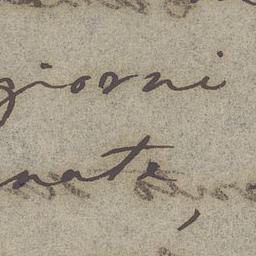 giorni
nate,